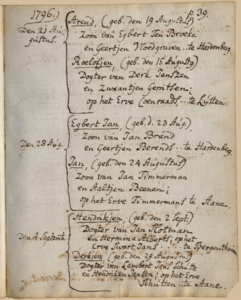 1796.) p. 39.
Den 21 Au-
gustus.
Arend, (geb. den 19 Augustus)
Zoon van Egbert Ten Broeke
en Geertjen Vloedgraven te Hardenberg
Roelofjen, (geb. den 15 Augustus)
Dogter van Derk Janszen
en Zwaantjen Gerritsen;
op het Erve Coenraads te Lutten.
Den 28 Aug.
Egbert Jan, (geb. d. 23 Aug.
Zoon van Jan Brand
en Geertjen Berends te Hardenberg.
Jan, (geb. den 24 Augustus)
Zoon van Jan Timmerman
en Aaltjen Beenen;
op het Erve Timmermans te Aane.
Den 4 Septemb.
Hendrikjen, (geb. den 2 Sept.)
Dogter van Jan
en Hermina; op het
Erve te
Derkjen (geb. den 29 Augustus)
Dogter van Lambert Jans
en Hendrikjen; op het Erve
Schutten te Aane.